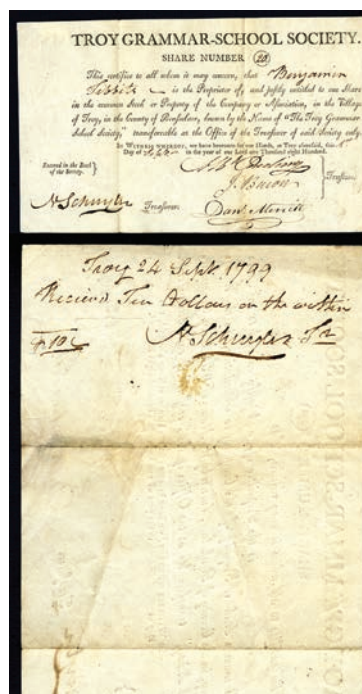 TROY GRAMMAR-SCHOOL SOCIETY.
SHARE NUMBER 28
This certifies to all whom it may concern, that Benjamin
Tibbits is the Proprietor of, and justly entitled to one Share
in the common Stock or Property of the Company or Association, in the Village
of Troy, in the County of Rensselaer, known by the Name of "The Troy Grammar
School Society," transferrable at the Office of the Treasurer of said Society only.
IN WITNESS WHEREOF, we have hereunto set our Hands, at Troy aforesaid, this
Day of in the year of our Lord one Thousand eight Hundred.
Entered in the Book
of the Society.
N Schuyler Treasurer.
Trustees.
Danl. Merritt
Troy 24 Sept. 1799
Recieved Ten Dollars on the within
$10
N Schuyler Tr